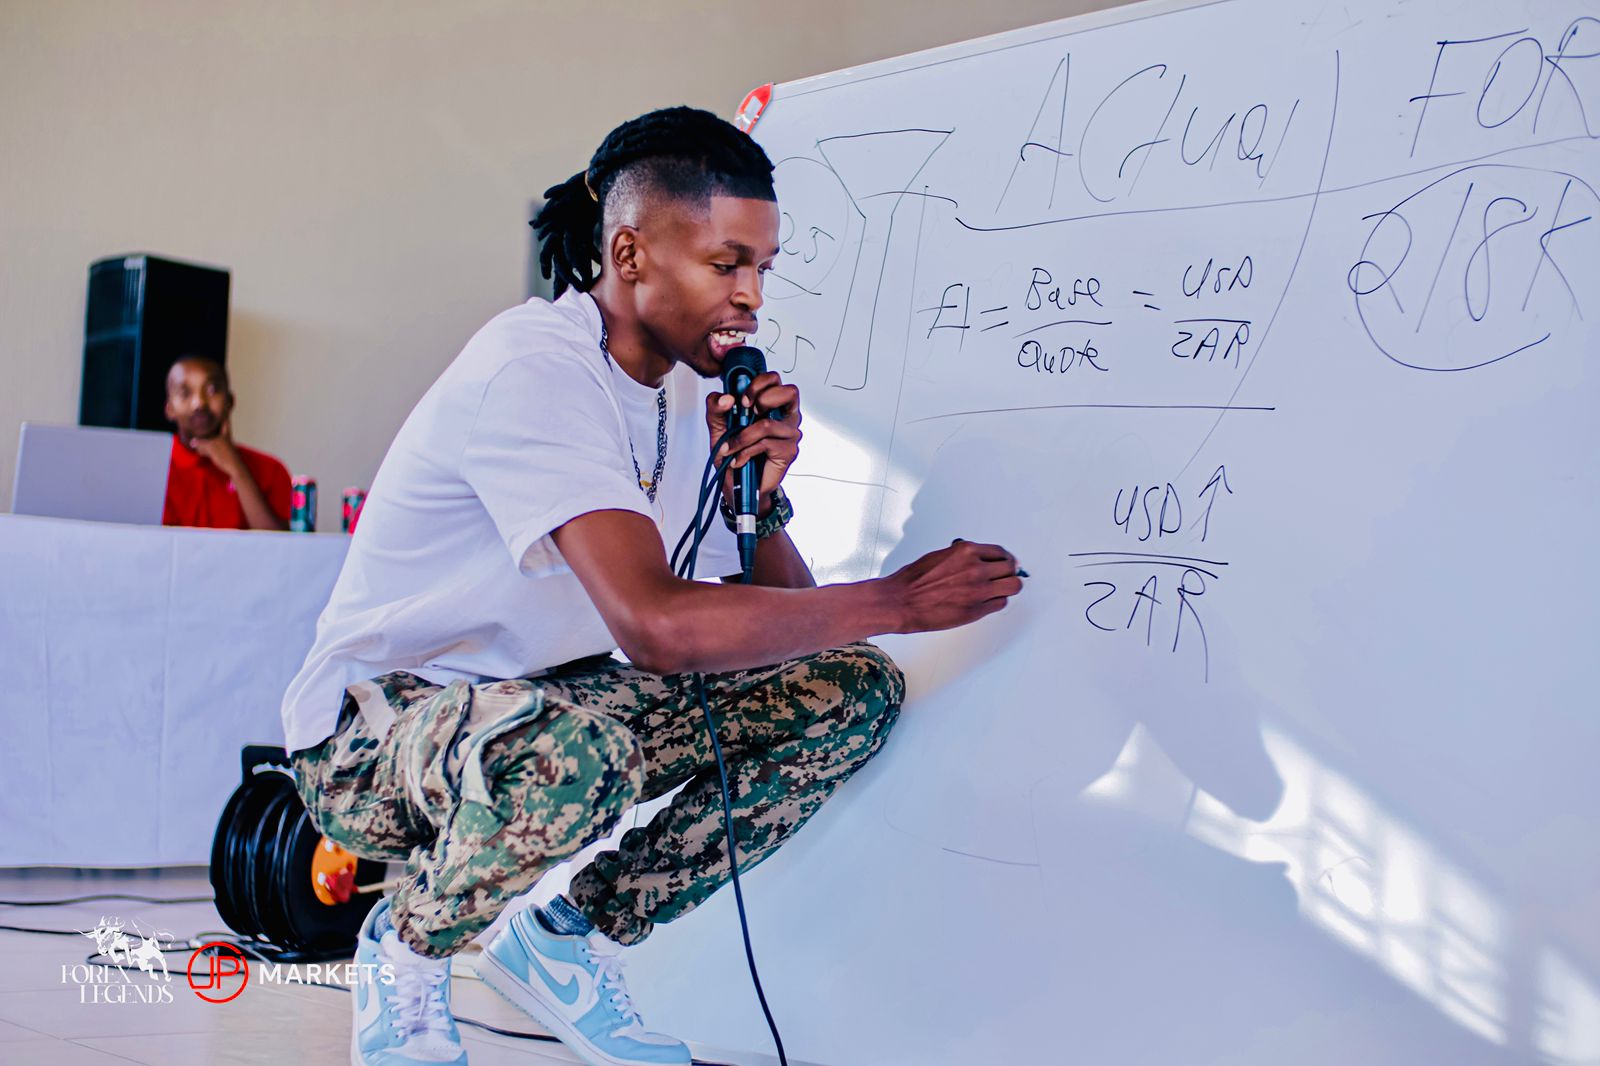 ACtual
FOR
218K
25
75
= Base = USD
Quote ZAR
USD↑
ZAR
FOREX
LEGENDS
JP MARKETS